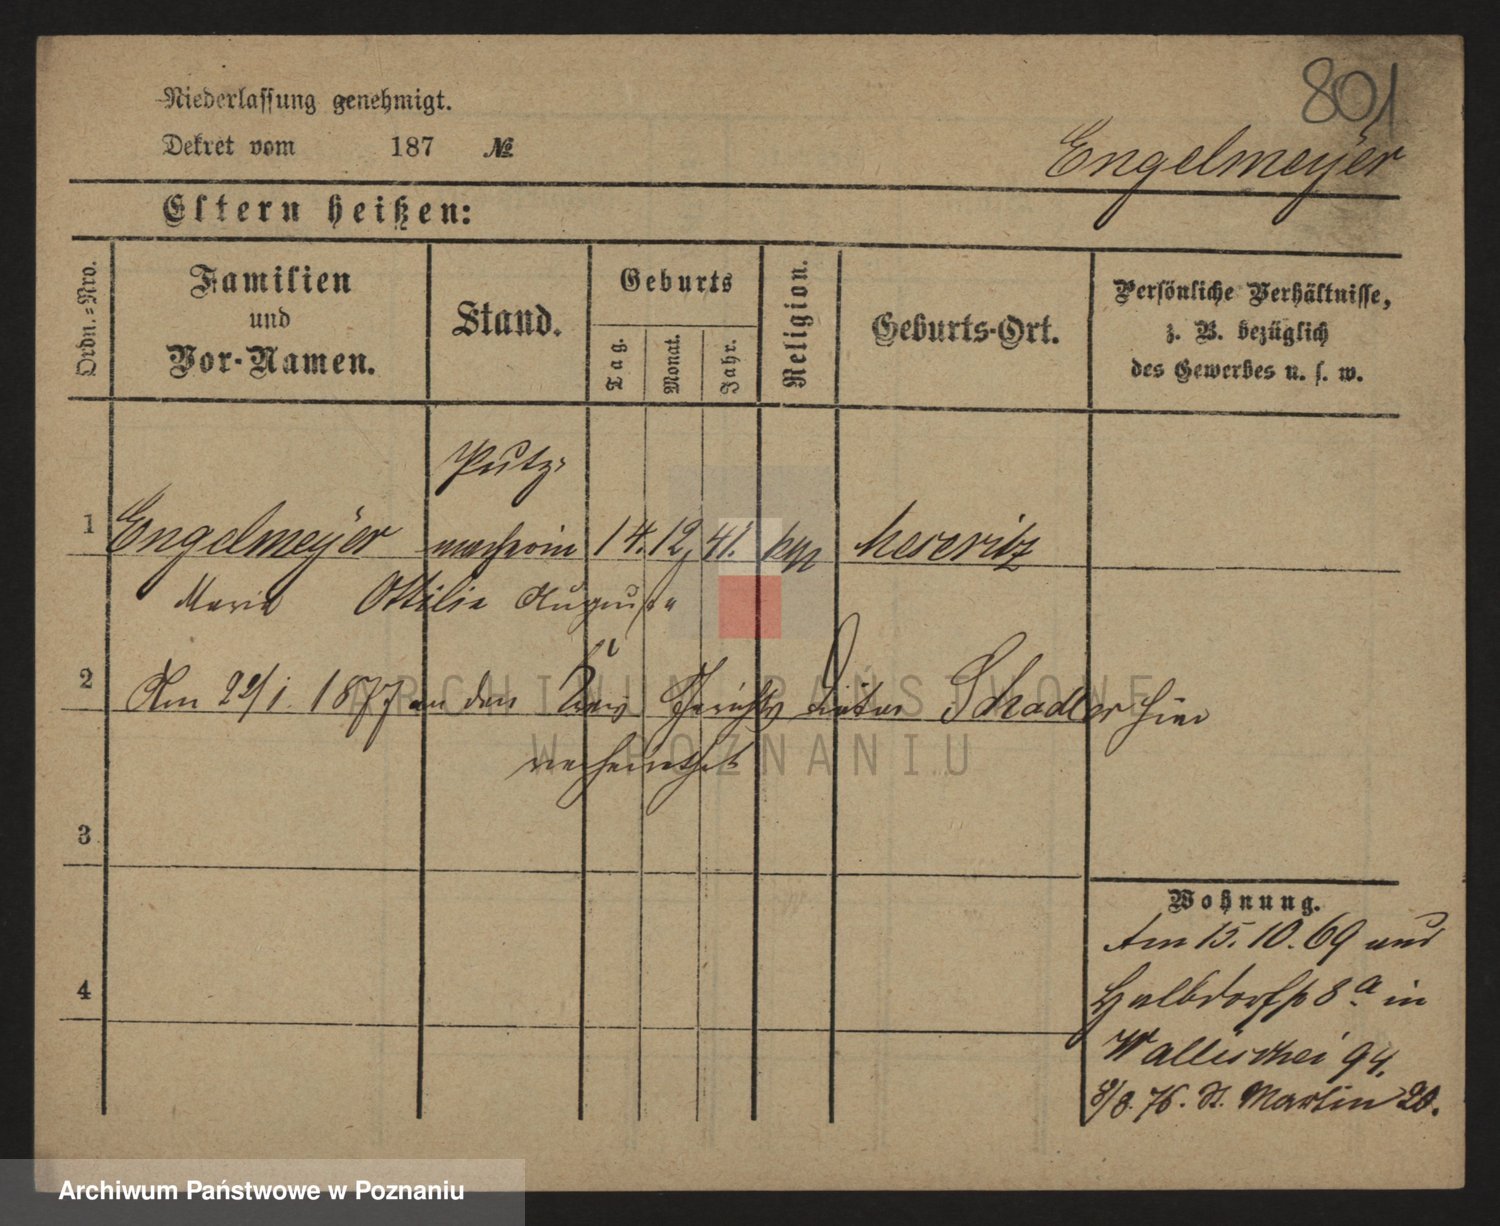 801
Niederlassung genehmigt.
Dekret vom 187 №
Engelmeyer
Eltern heißen:
Ordn.=Nro.
Familien
und
Vor-Namen.
Stand.
Geburts
Tag.
Monat.
Jahr.
Religion.
Geburts-Ort.
Persönliche Verhältnisse,
z. B. bezüglich
des Gewerbes u. s. w.
Putz-
1 Engelmeyer macherin 14. 12. 41. Meseritz
Maria Ottilie Auguste
2 Am 22/1. 1877 an den Kreis Gerichts Diätar Schadler hier
verheirathet
3
4
Wohnung.
Am 15. 10. 69 aus
Halbdorfstr 8a in
Wallischei 94.
9/8. 76. St. Martin 20.
ARCHIWUM PAŃSTWOWE
W POZNANIU
Archiwum Państwowe w Poznaniu